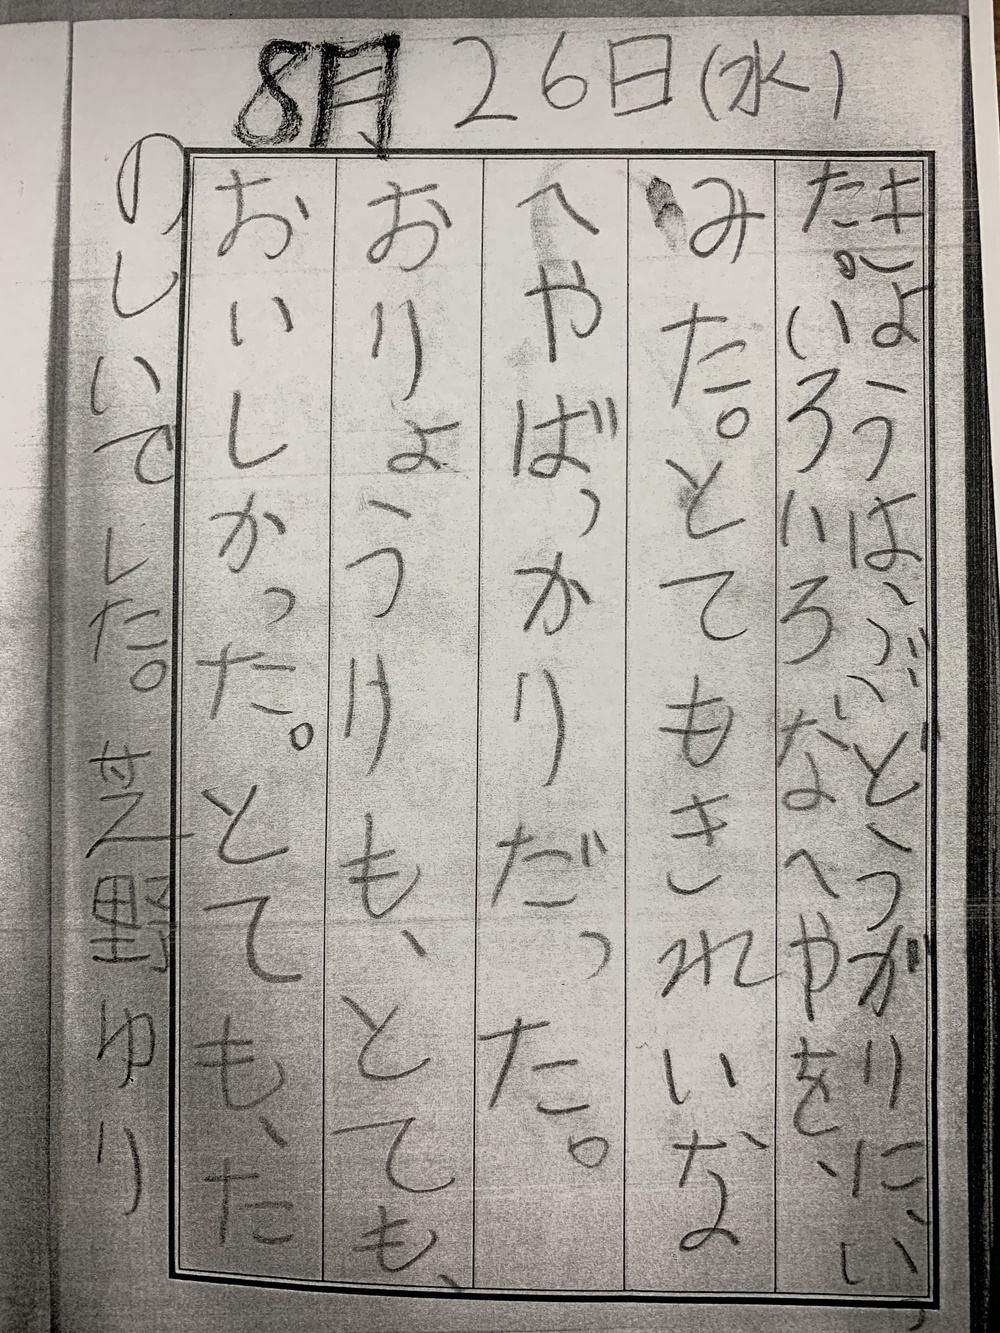 8月26日(水)
きょうは、ぶどうがりに、いっ
た。いろいろなへやを、
みた。とてもきれいな
へやばっかりだった。
おりょうりも、とても、
おいしかった。とても、た
のしいでした。芝野ゆり